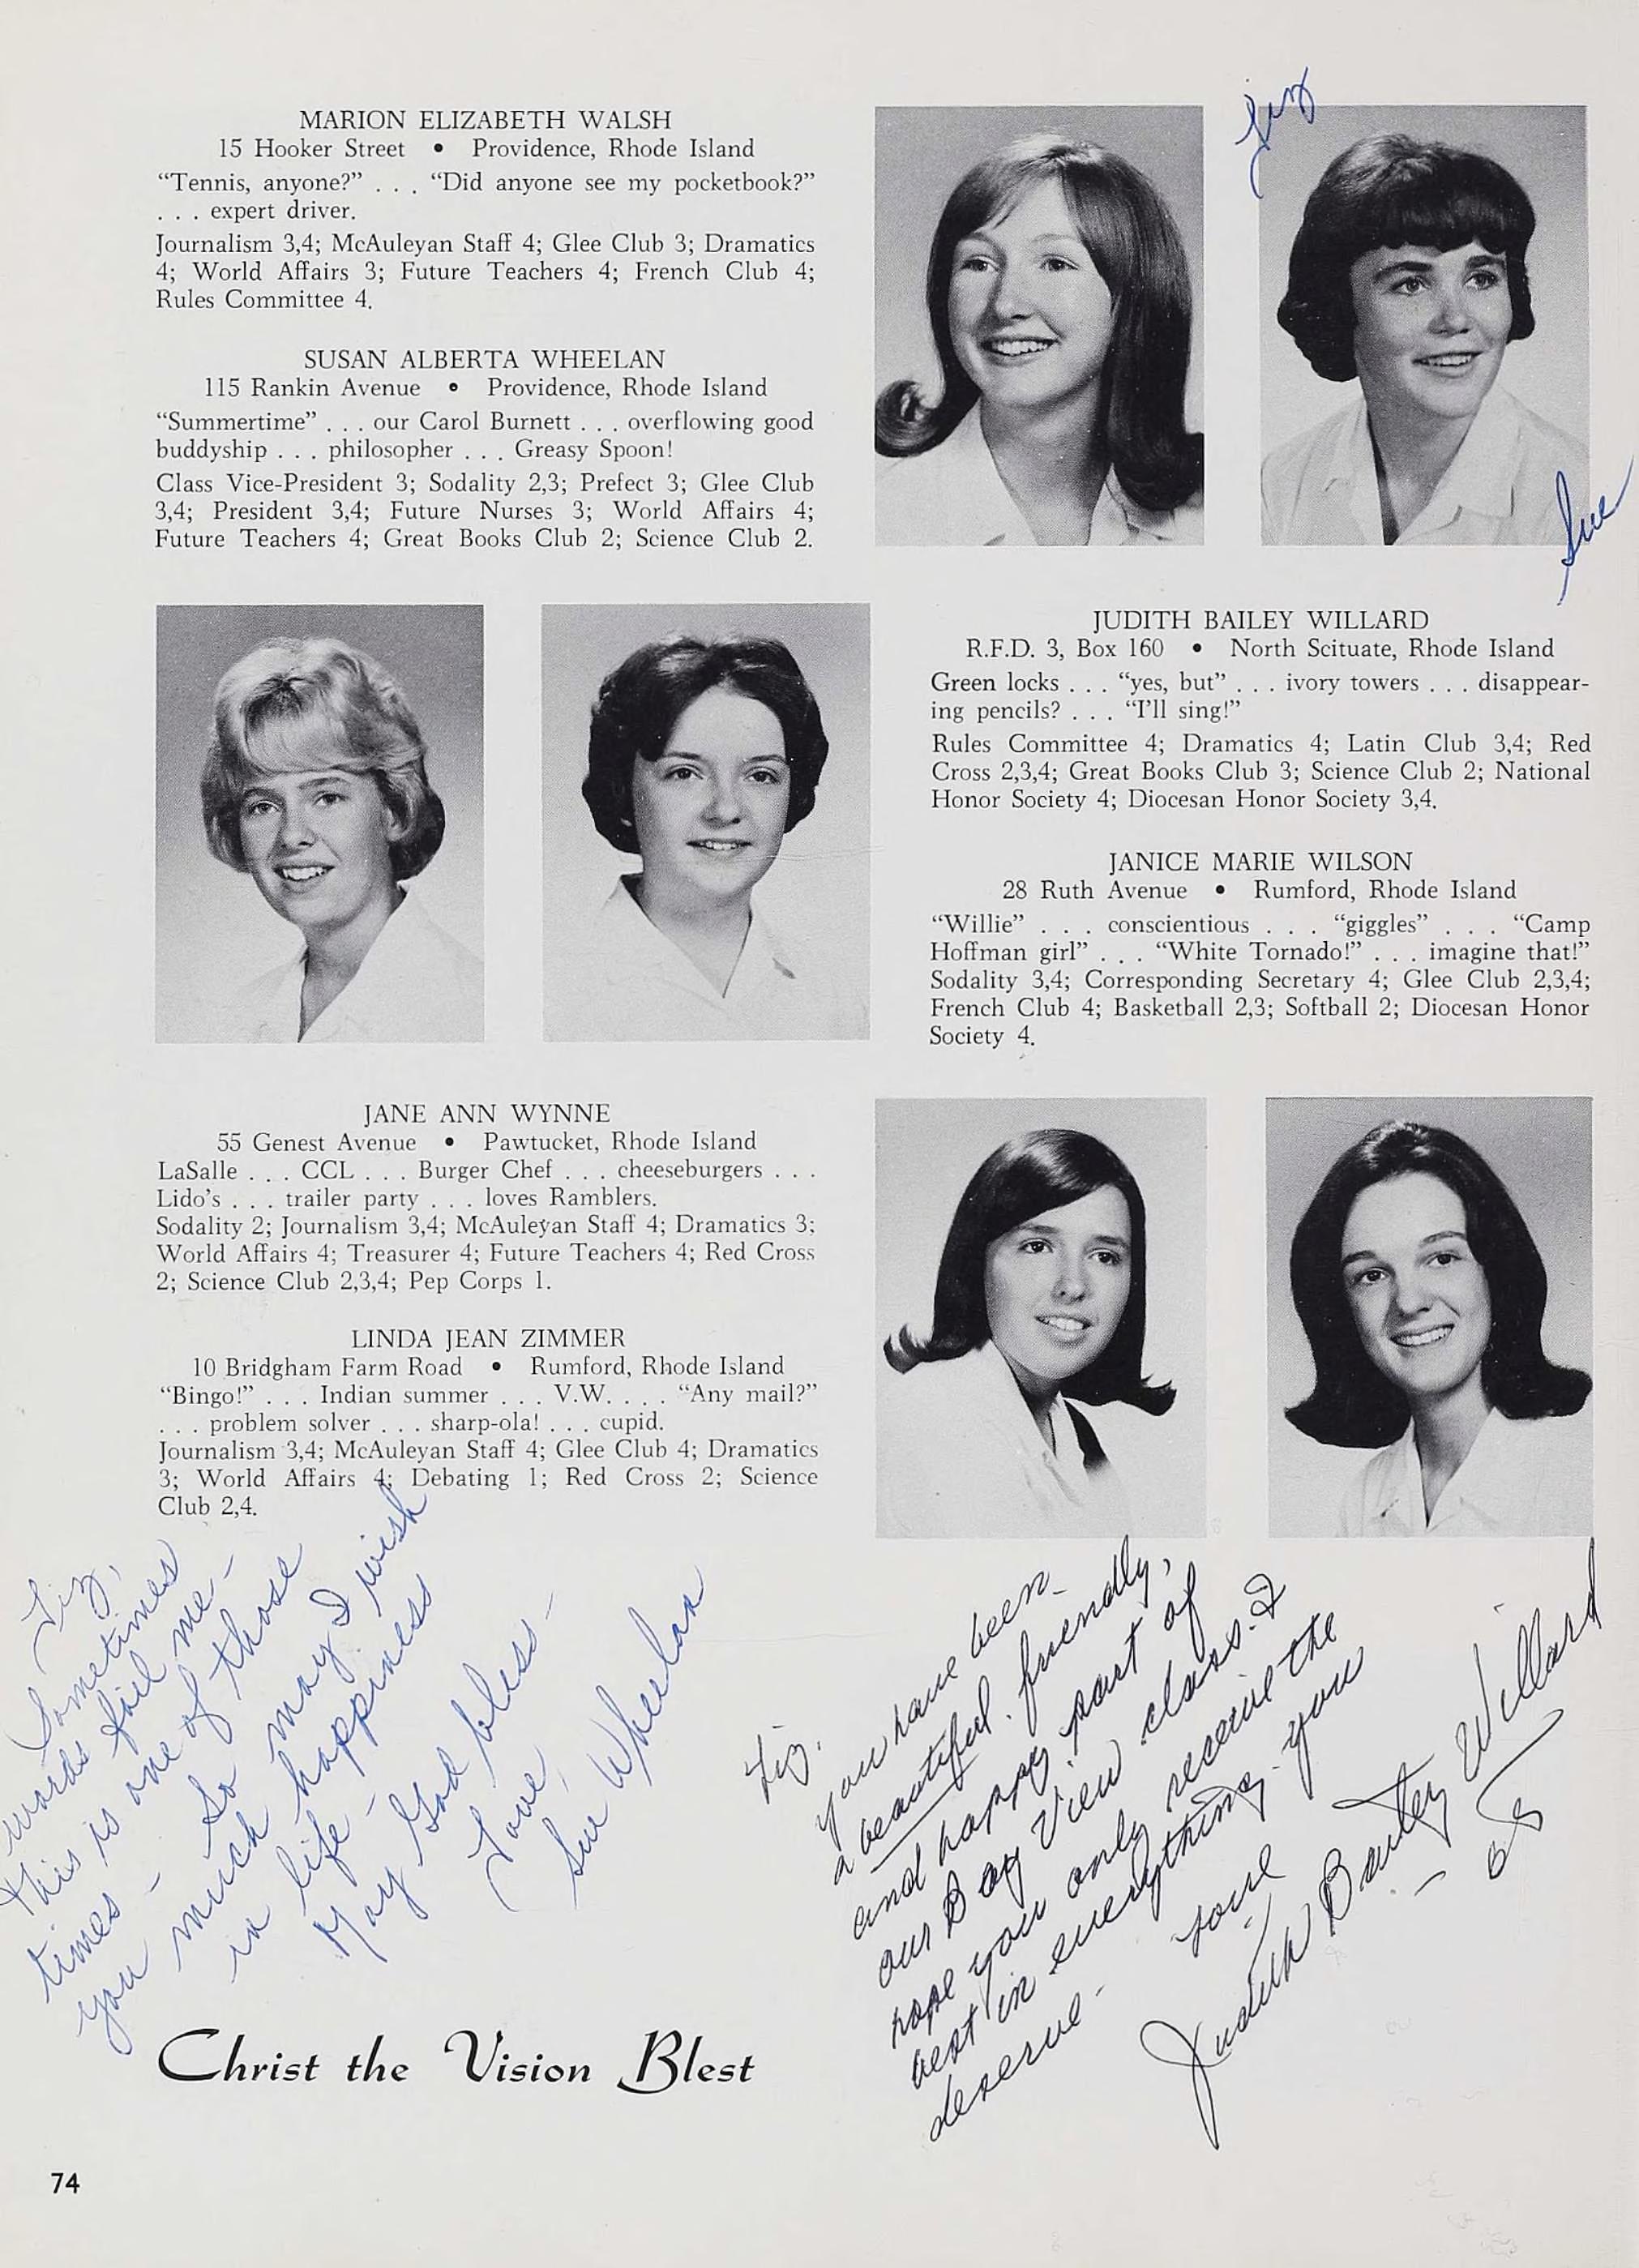 MARION ELIZABETH WALSH
15 Hooker Street • Providence, Rhode Island
“Tennis, anyone?” . . . “Did anyone see my pocketbook?”
. . . expert driver.
Journalism 3,4; McAuleyan Staff 4; Glee Club 3; Dramatics
4; World Affairs 3; Future Teachers 4; French Club 4;
Rules Committee 4.
SUSAN ALBERTA WHEELAN
115 Rankin Avenue • Providence, Rhode Island
“Summertime” . . . our Carol Burnett . . . overflowing good
buddyship . . . philosopher . . . Greasy Spoon!
Class Vice-President 3; Sodality 2,3; Prefect 3; Glee Club
3,4; President 3,4; Future Nurses 3; World Affairs 4;
Future Teachers 4; Great Books Club 2; Science Club 2.
Liz
Sue
JUDITH BAILEY WILLARD
R.F.D. 3, Box 160 • North Scituate, Rhode Island
Green locks . . . “yes, but” . . . ivory towers . . . disappear-
ing pencils? . . . “I’ll sing!”
Rules Committee 4; Dramatics 4; Latin Club 3,4; Red
Cross 2,3,4; Great Books Club 3; Science Club 2; National
Honor Society 4; Diocesan Honor Society 3,4.
JANICE MARIE WILSON
28 Ruth Avenue • Rumford, Rhode Island
“Willie” . . . conscientious . . . “giggles” . . . “Camp
Hoffman girl” . . . “White Tornado!” . . . imagine that!”
Sodality 3,4; Corresponding Secretary 4; Glee Club 2,3,4;
French Club 4; Basketball 2,3; Softball 2; Diocesan Honor
Society 4.
JANE ANN WYNNE
55 Genest Avenue • Pawtucket, Rhode Island
LaSalle . . . CCL . . . Burger Chef . . . cheeseburgers . . .
Lido’s . . . trailer party . . . loves Ramblers.
Sodality 2; Journalism 3,4; McAuleyan Staff 4; Dramatics 3;
World Affairs 4; Treasurer 4; Future Teachers 4; Red Cross
2; Science Club 2,3,4; Pep Corps 1.
LINDA JEAN ZIMMER
10 Bridgham Farm Road • Rumford, Rhode Island
“Bingo!” . . . Indian summer . . . V.W. . . . “Any mail?”
. . . problem solver . . . sharp-ola! . . . cupid.
Journalism 3,4; McAuleyan Staff 4; Glee Club 4; Dramatics
3; World Affairs 4; Debating 1; Red Cross 2; Science
Club 2,4.
Liz,
Sometimes
words fail me -
this is one of those
times - So may I wish
you much happiness
in life -
May God bless -
Love,
Sue Wheelan
Liz,
you have been
a beautiful, friendly,
and happy part of
our Bay View class. I
hope you only receive the
best in everything you
deserve -
Love
Judith Bailey Willard
- 68
Christ the Vision Blest
74